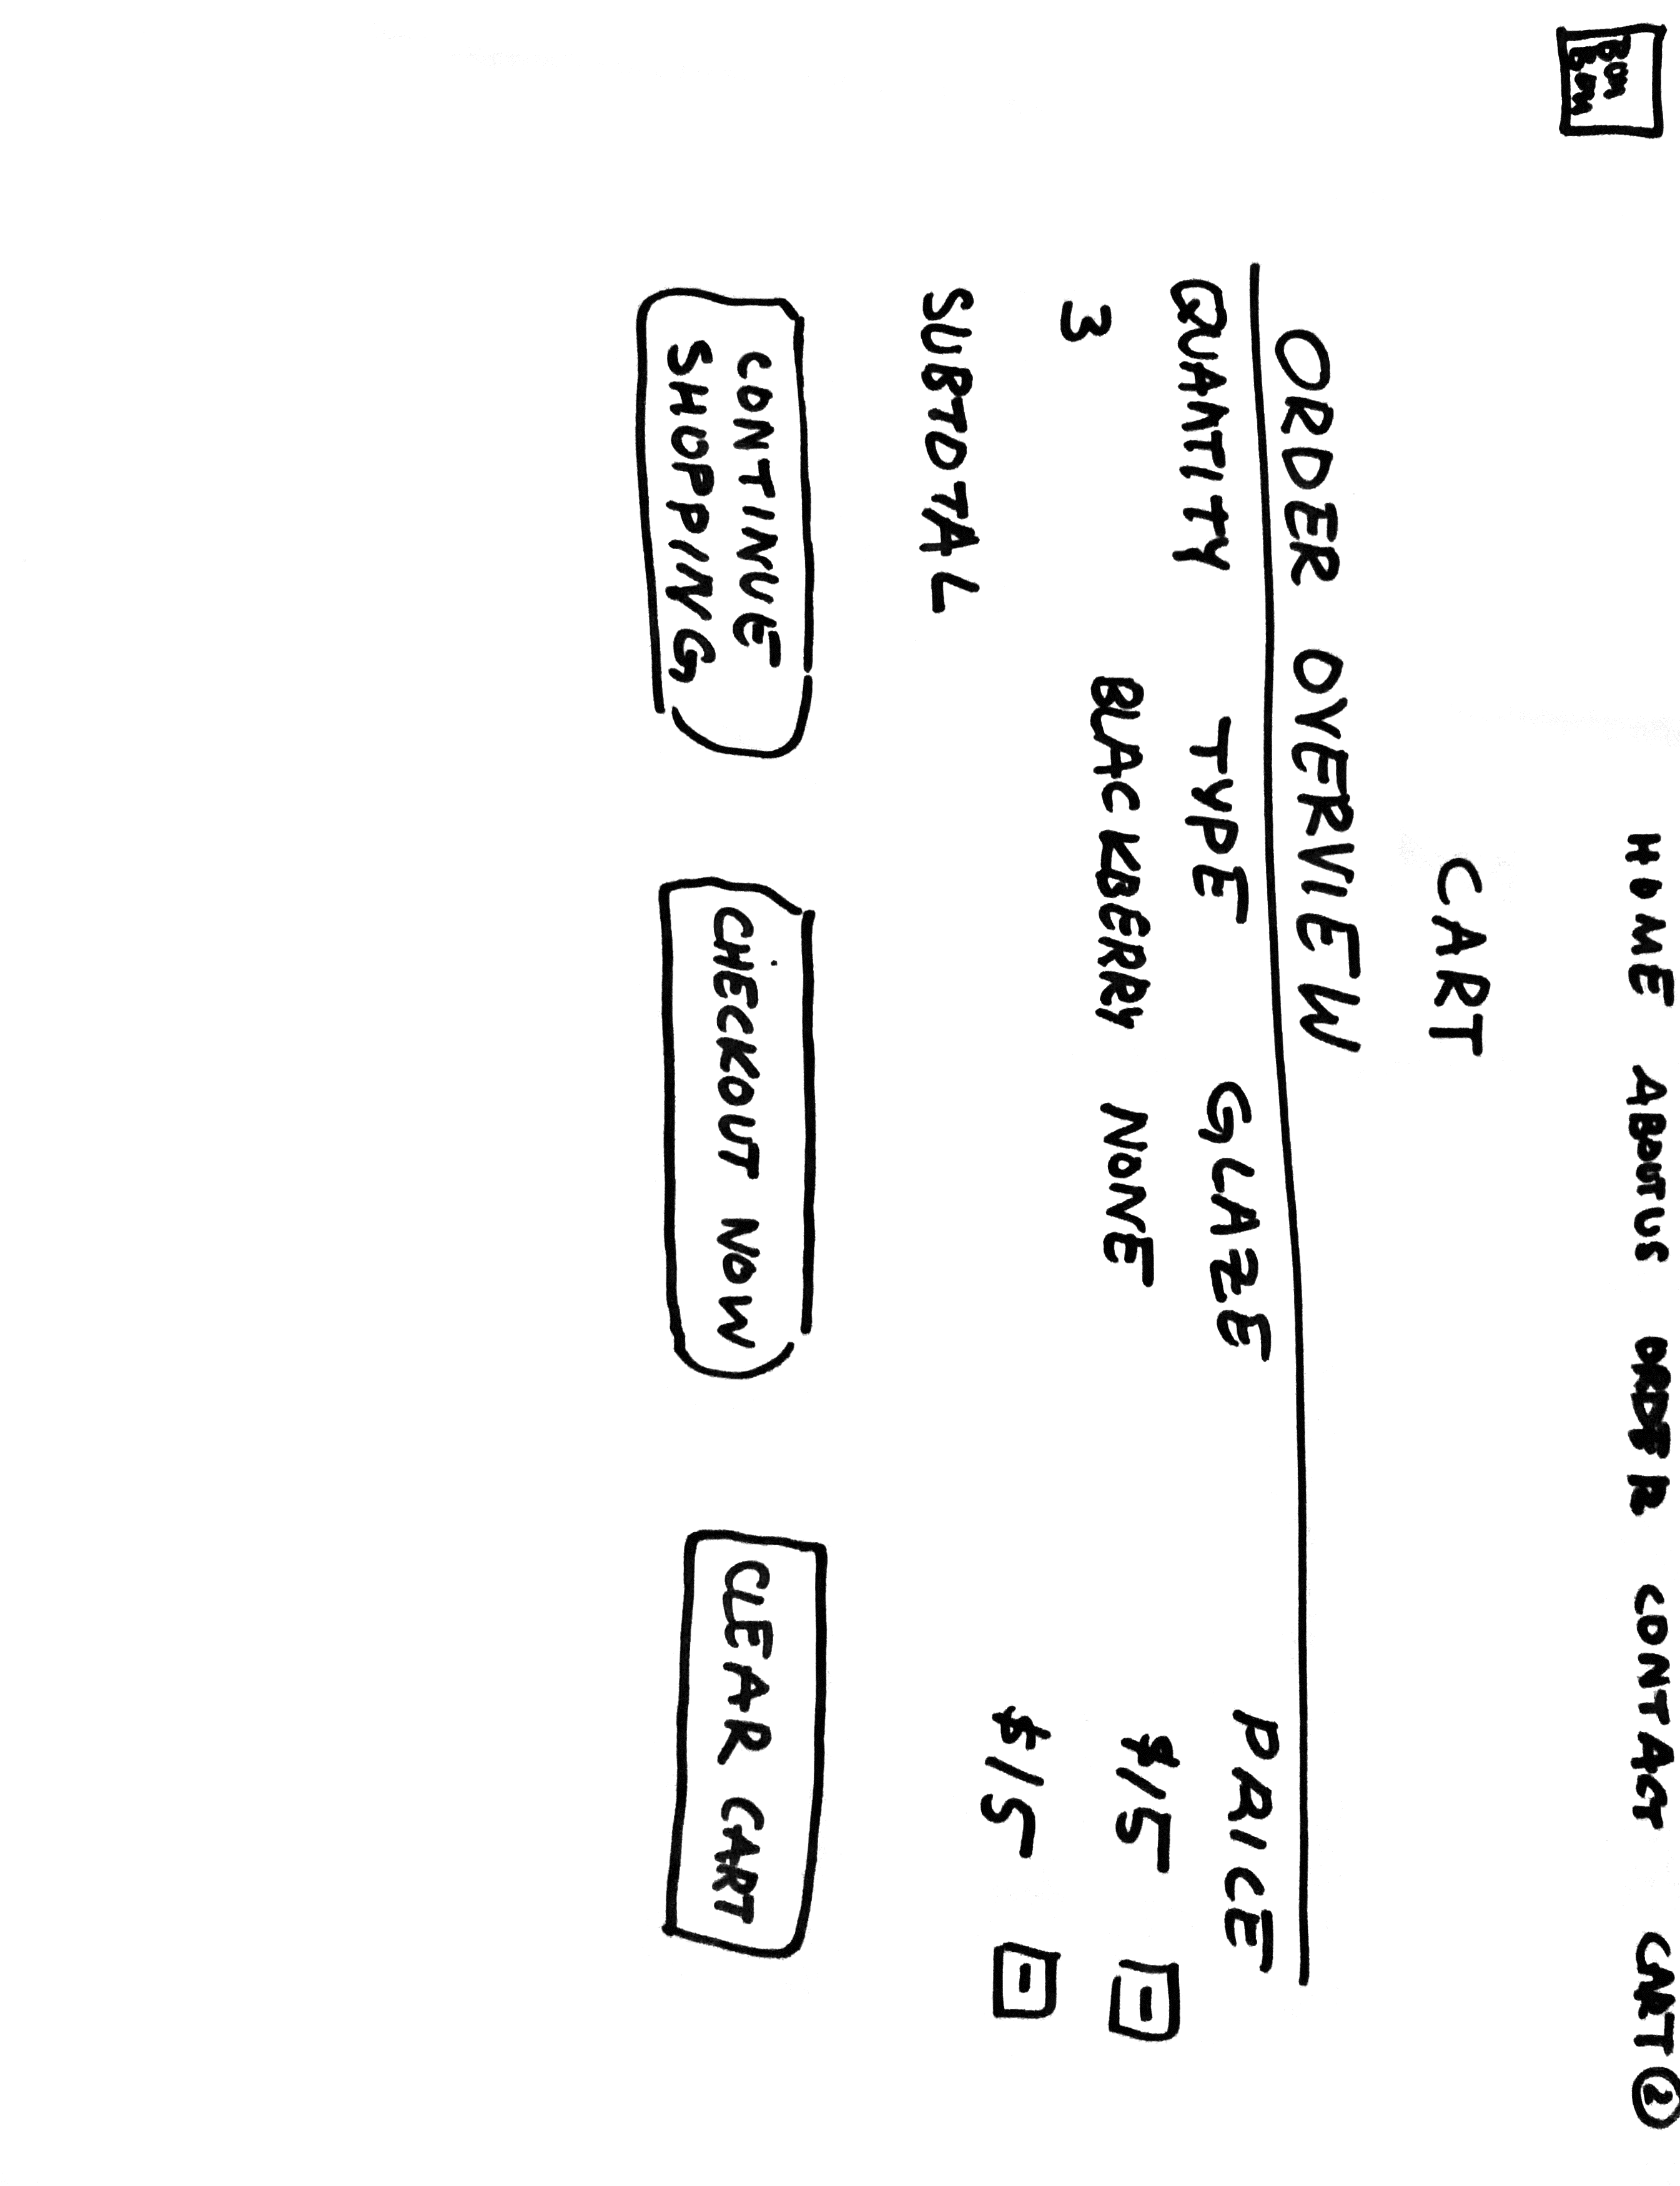 Bun
Bun
HOME ABOUT US ORDER CONTACT CART 2
CART
ORDER OVERVIEW
QUANTITY TYPE GLAZE PRICE
3 BLACKBERRY NONE $15 -
SUBTOTAL $15 -
CONTINUE
SHOPPING
CHECKOUT NOW
CLEAR CART